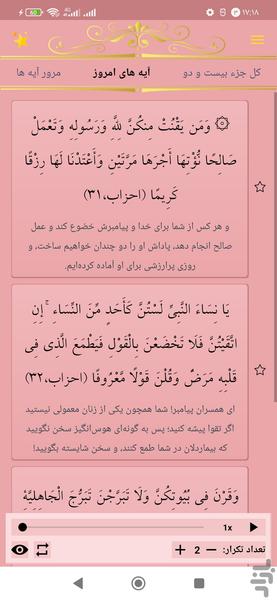 ۱۷:۱۸
کل جزء بیست و دو
آیه های امروز
مرور آیه ها
۞ وَمَن يَقْنُتْ مِنكُنَّ لِلَّهِ وَرَسُولِهِ وَتَعْمَلْ
صَالِحًا نُّؤْتِهَا أَجْرَهَا مَرَّتَيْنِ وَأَعْتَدْنَا لَهَا رِزْقًا
كَرِيمًا (احزاب،۳۱)
و هر کس از شما برای خدا و پیامبرش خضوع کند و عمل
صالح انجام دهد، پاداش او را دو چندان خواهیم ساخت، و
روزی پرارزشی برای او آماده کرده‌ایم.
يَا نِسَاءَ النَّبِيِّ لَسْتُنَّ كَأَحَدٍ مِّنَ النِّسَاءِ ۚ إِنِ
اتَّقَيْتُنَّ فَلَا تَخْضَعْنَ بِالْقَوْلِ فَيَطْمَعَ الَّذِي فِي
قَلْبِهِ مَرَضٌ وَقُلْنَ قَوْلًا مَّعْرُوفًا (احزاب،۳۲)
ای همسران پیامبر! شما همچون یکی از زنان معمولی نیستید
اگر تقوا پیشه کنید؛ پس به گونه‌ای هوس‌انگیز سخن نگویید
که بیماردلان در شما طمع کنند، و سخن شایسته بگویید!
وَقَرْنَ فِي بُيُوتِكُنَّ وَلَا تَبَرَّجْنَ تَبَرُّجَ الْجَاهِلِيَّةِ
1x
تعداد تکرار: — 2 +
بازار